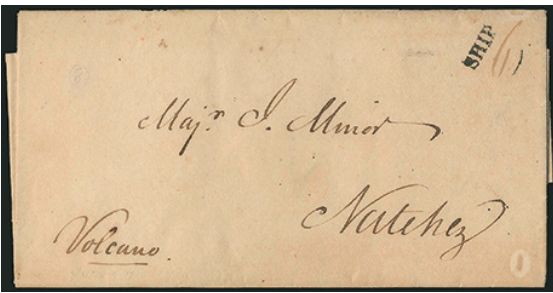 SHIP
Majr. J. Minor
Natchez
Volcano.